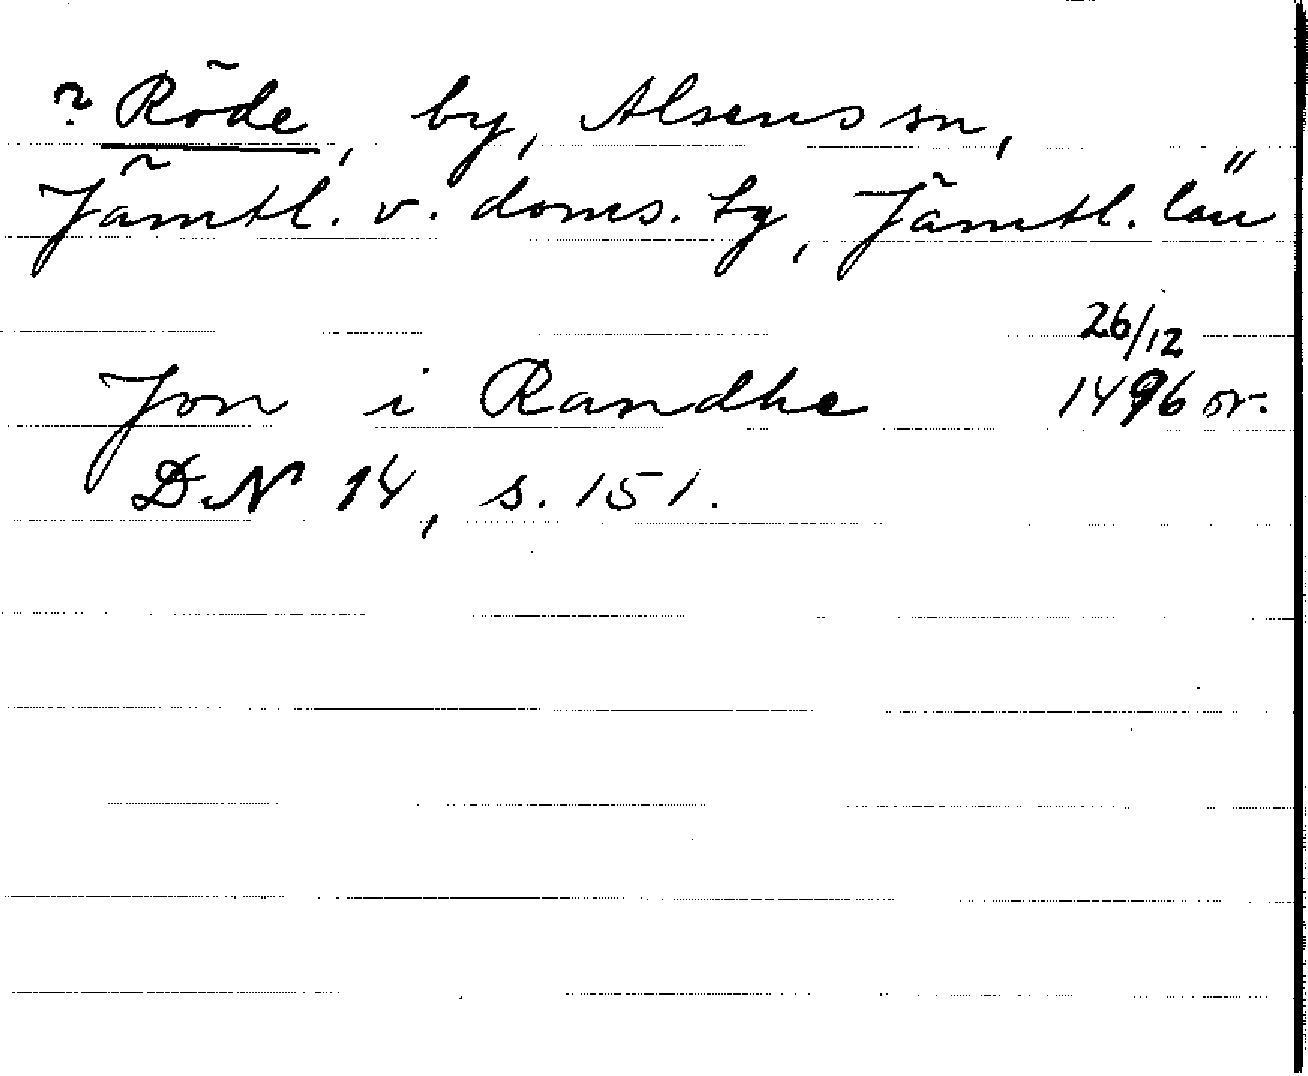 ? Röde, by, Alsens sn,
Jämtl. v. doms. tg, Jämtl. län
26/12
Jon i Randhe 1496 or.
DN 14, s. 151.